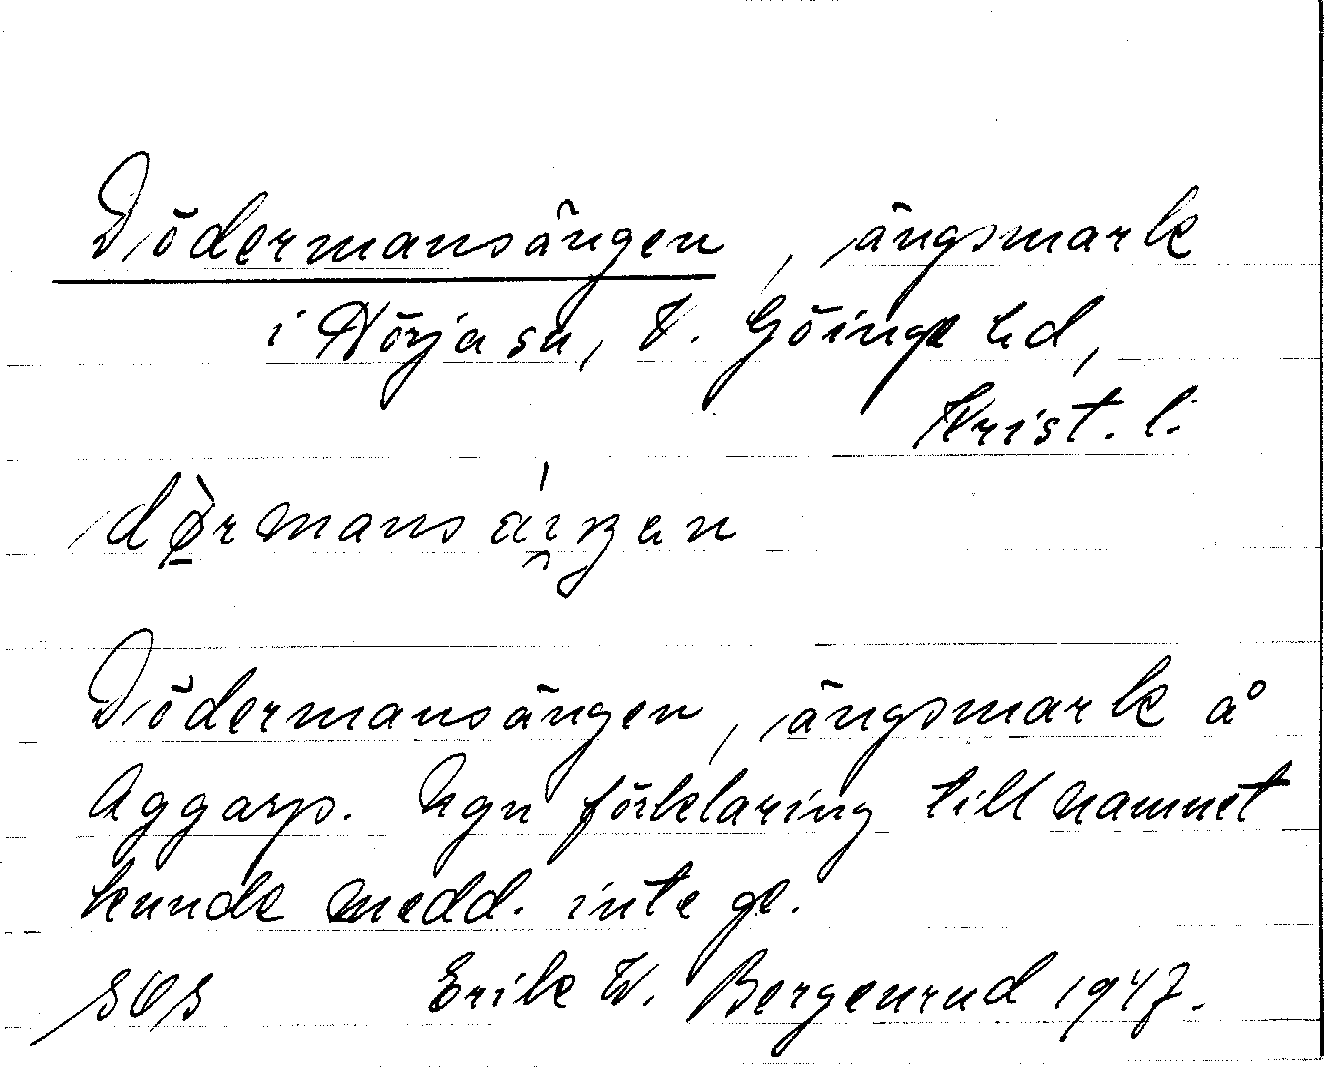 Dödermansängen, ängsmark
i Nörja sn, V. Göinge hd,
Krist. l.
dø̀rmansäiŋen
Dödermansängen, ängsmark å
Aggarp. Ngn förklaring till namnet
kunde medd. inte ge.
SOS Erik W. Bergenrud 1947.